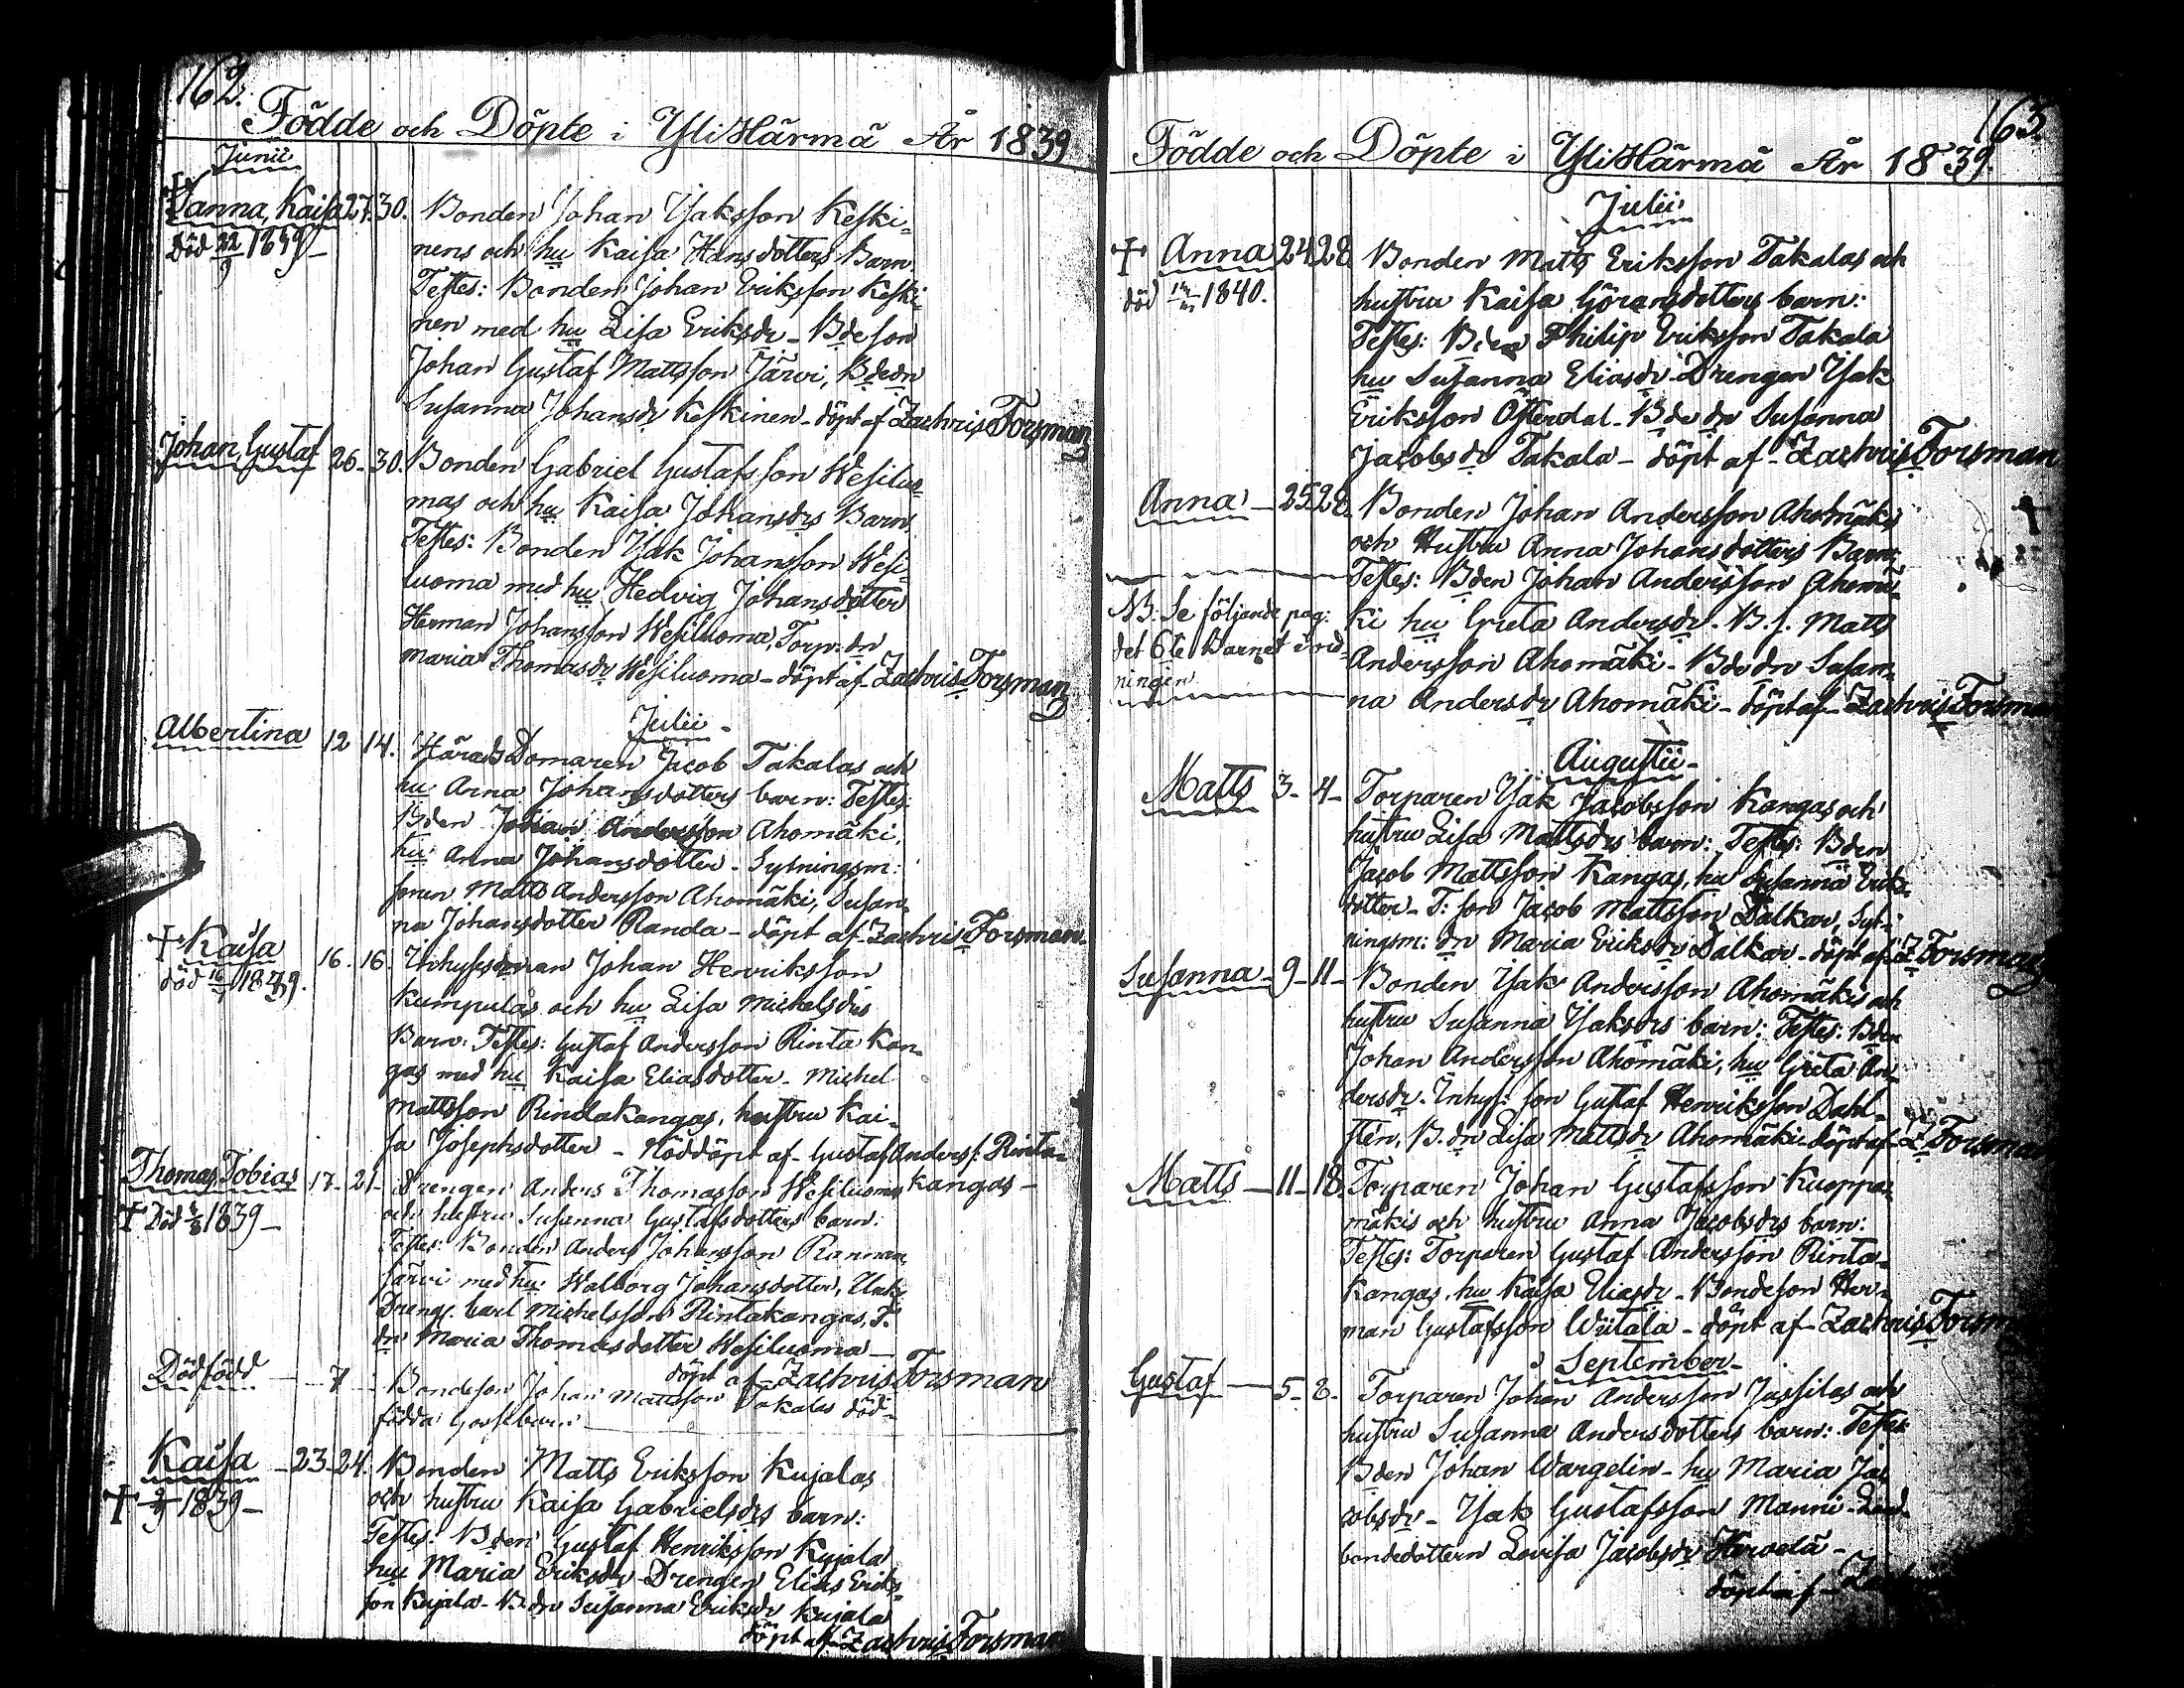 162.
Födde och Döpte i YliHärmä År 1839
Junii
+
Sanna, Kaisa 27. 30. Bonden Johan Isaksson Keski-
död 22/9 1839 - nens och hu Kaisa Hansdotters Barn.
Testes: Bonden Johan Eriksson Keski-
nen med hu Lisa Eriksdr - Bdeson
Johan Gustaf Mattsson Järvi, Bdedn
Susanna Johansdr Keskinen - döpt af Zachris Forsman
Johan Gustaf 26 - 30. Bonden Gabriel Gustafsson Wesiluo-
mas och hu Kaisa Johansdrs Barn.
Testes: Bonden Isak Johansson Wesi-
luoma med hu Hedvig Johansdotter
Herman Johansson Wesiluoma, Torp: dn
Maria Thomasdr Wesiluoma - döpt af Zachris Forsman
Julii -
Albertina 12 14. HäradsDomaren Jacob Takalas och
hu Anna Johansdotters barn: Testes:
Bden Johan Andersson Ahomäki,
hu Anna Johansdotter - Sytningsm:
sonen Matts Andersson Ahomäki, Susan-
na Johansdotter Randa - döpt af Zachris Forsman.
+ Kaisa 16. 16. Inhysesman Johan Henriksson
död 1839. Kumpulas och hu Lisa Michelsdrs
Barn: Testes: Gustaf Andersson Rinta Kan-
gas med hu Kaisa Eliasdotter - Michel
Mattsson Rindakangas, hustru Kai-
sa Josephsdotter - Nöddöpt af Gustaf Anders s. Rinta-
kangas -
Thomas Tobias 17 - 21 - Drengen Anders Thomasson Wesiluomas
+ Död 1839 - och hustru Susanna Gustafsdotters barn:
Testes: Bonden Anders Johansson Rannan-
järvi med hu Walborg Johansdotter,
Dreng. Carl Michelsson Rintakangas, T.
dn Maria Thomasdotter Wesiluoma -
döpt af Zachris Forsman
Dödfödd - 7 - Bondeson Johan Mattsson Takalas död-
födda Gossebarn
Kaisa - 23 - 24. Bonden Matts Eriksson Kujalas
+ 1839 - och hustru Kaisa Gabrielsdrs barn:
Testes: Bden Gustaf Henriksson Kujala
hu Maria Eriksdr - Drengen Elias Eriks-
son Kujala - B: dn Susanna Eriksdr Kujala
döpt af Zachris Forsman
163
Födde och Döpte i YliHärmä År 1839.
Julii
+ Anna 24 28 Bonden Matts Eriksson Takalas och
död 1840. hustru Kaisa Göransdotters barn:
Testes: Bden Philip Eriksson Takala
hu Susanna Eliasdr - Drengen Isak
Eriksson Österdal - Bde dn Susanna
Jacobsdr Takala - döpt af - Zachris Forsman
Anna - 25 28. Bonden Johan Andersson Ahomäkis
och Hustru Anna Johansdotters Barn:
Testes: Bden Johan Andersson Ahomä-
NB: Se följande pag: ki hu Greta Andersdr. B. s. Matts
det 6te Barnet i ord- Andersson Ahomäki - Bde dn Susan-
ningen na Andersdr Ahomäki - döpt af Zachris Forsman
Augustii -
Matts 3 - 4 - Torparen Isak Jacobsson Kangas och
hustru Lisa Mattsdrs barn: Testes: Bden
Jacob Mattsson Kangas, hu Susanna Eriks-
dotter - T: son Jacob Mattsson Dalkar, Syt-
ningsm: dn Maria Eriksdr Dalkar - döpt af Z Forsman
Susanna - 9 - 11 - Bonden Isak Andersson Ahomäkis och
hustru Susanna Isaksdrs barn: Testes: Bden
Johan Andersson Ahomäki, hu Greta An-
dersdr. Inhys: son Gustaf Henriksson Dahl-
sten, B. dn Lisa Mattsdr Ahomäki - döpt af Z Forsman
Matts - 11 - 18. Torparen Johan Gustafsson Kuoppa-
mäkis och hustru Anna Jacobsdrs barn:
Testes: Torparen Gustaf Andersson Rinta-
kangas, hu Kaisa Eliasdr - Bondeson Her-
man Gustafsson Wiitala - döpt af Zachris Forsman
September -
Gustaf - 5 - 8. Torparen Johan Andersson Jussilas och
hustru Susanna Andersdotters barn: Testes
Bden Johan Wargelin - hu Maria Ja-
cobsdr - Isak Gustafsson Manni -
bondedottern Lovisa Jacobsdr -
döpt af -